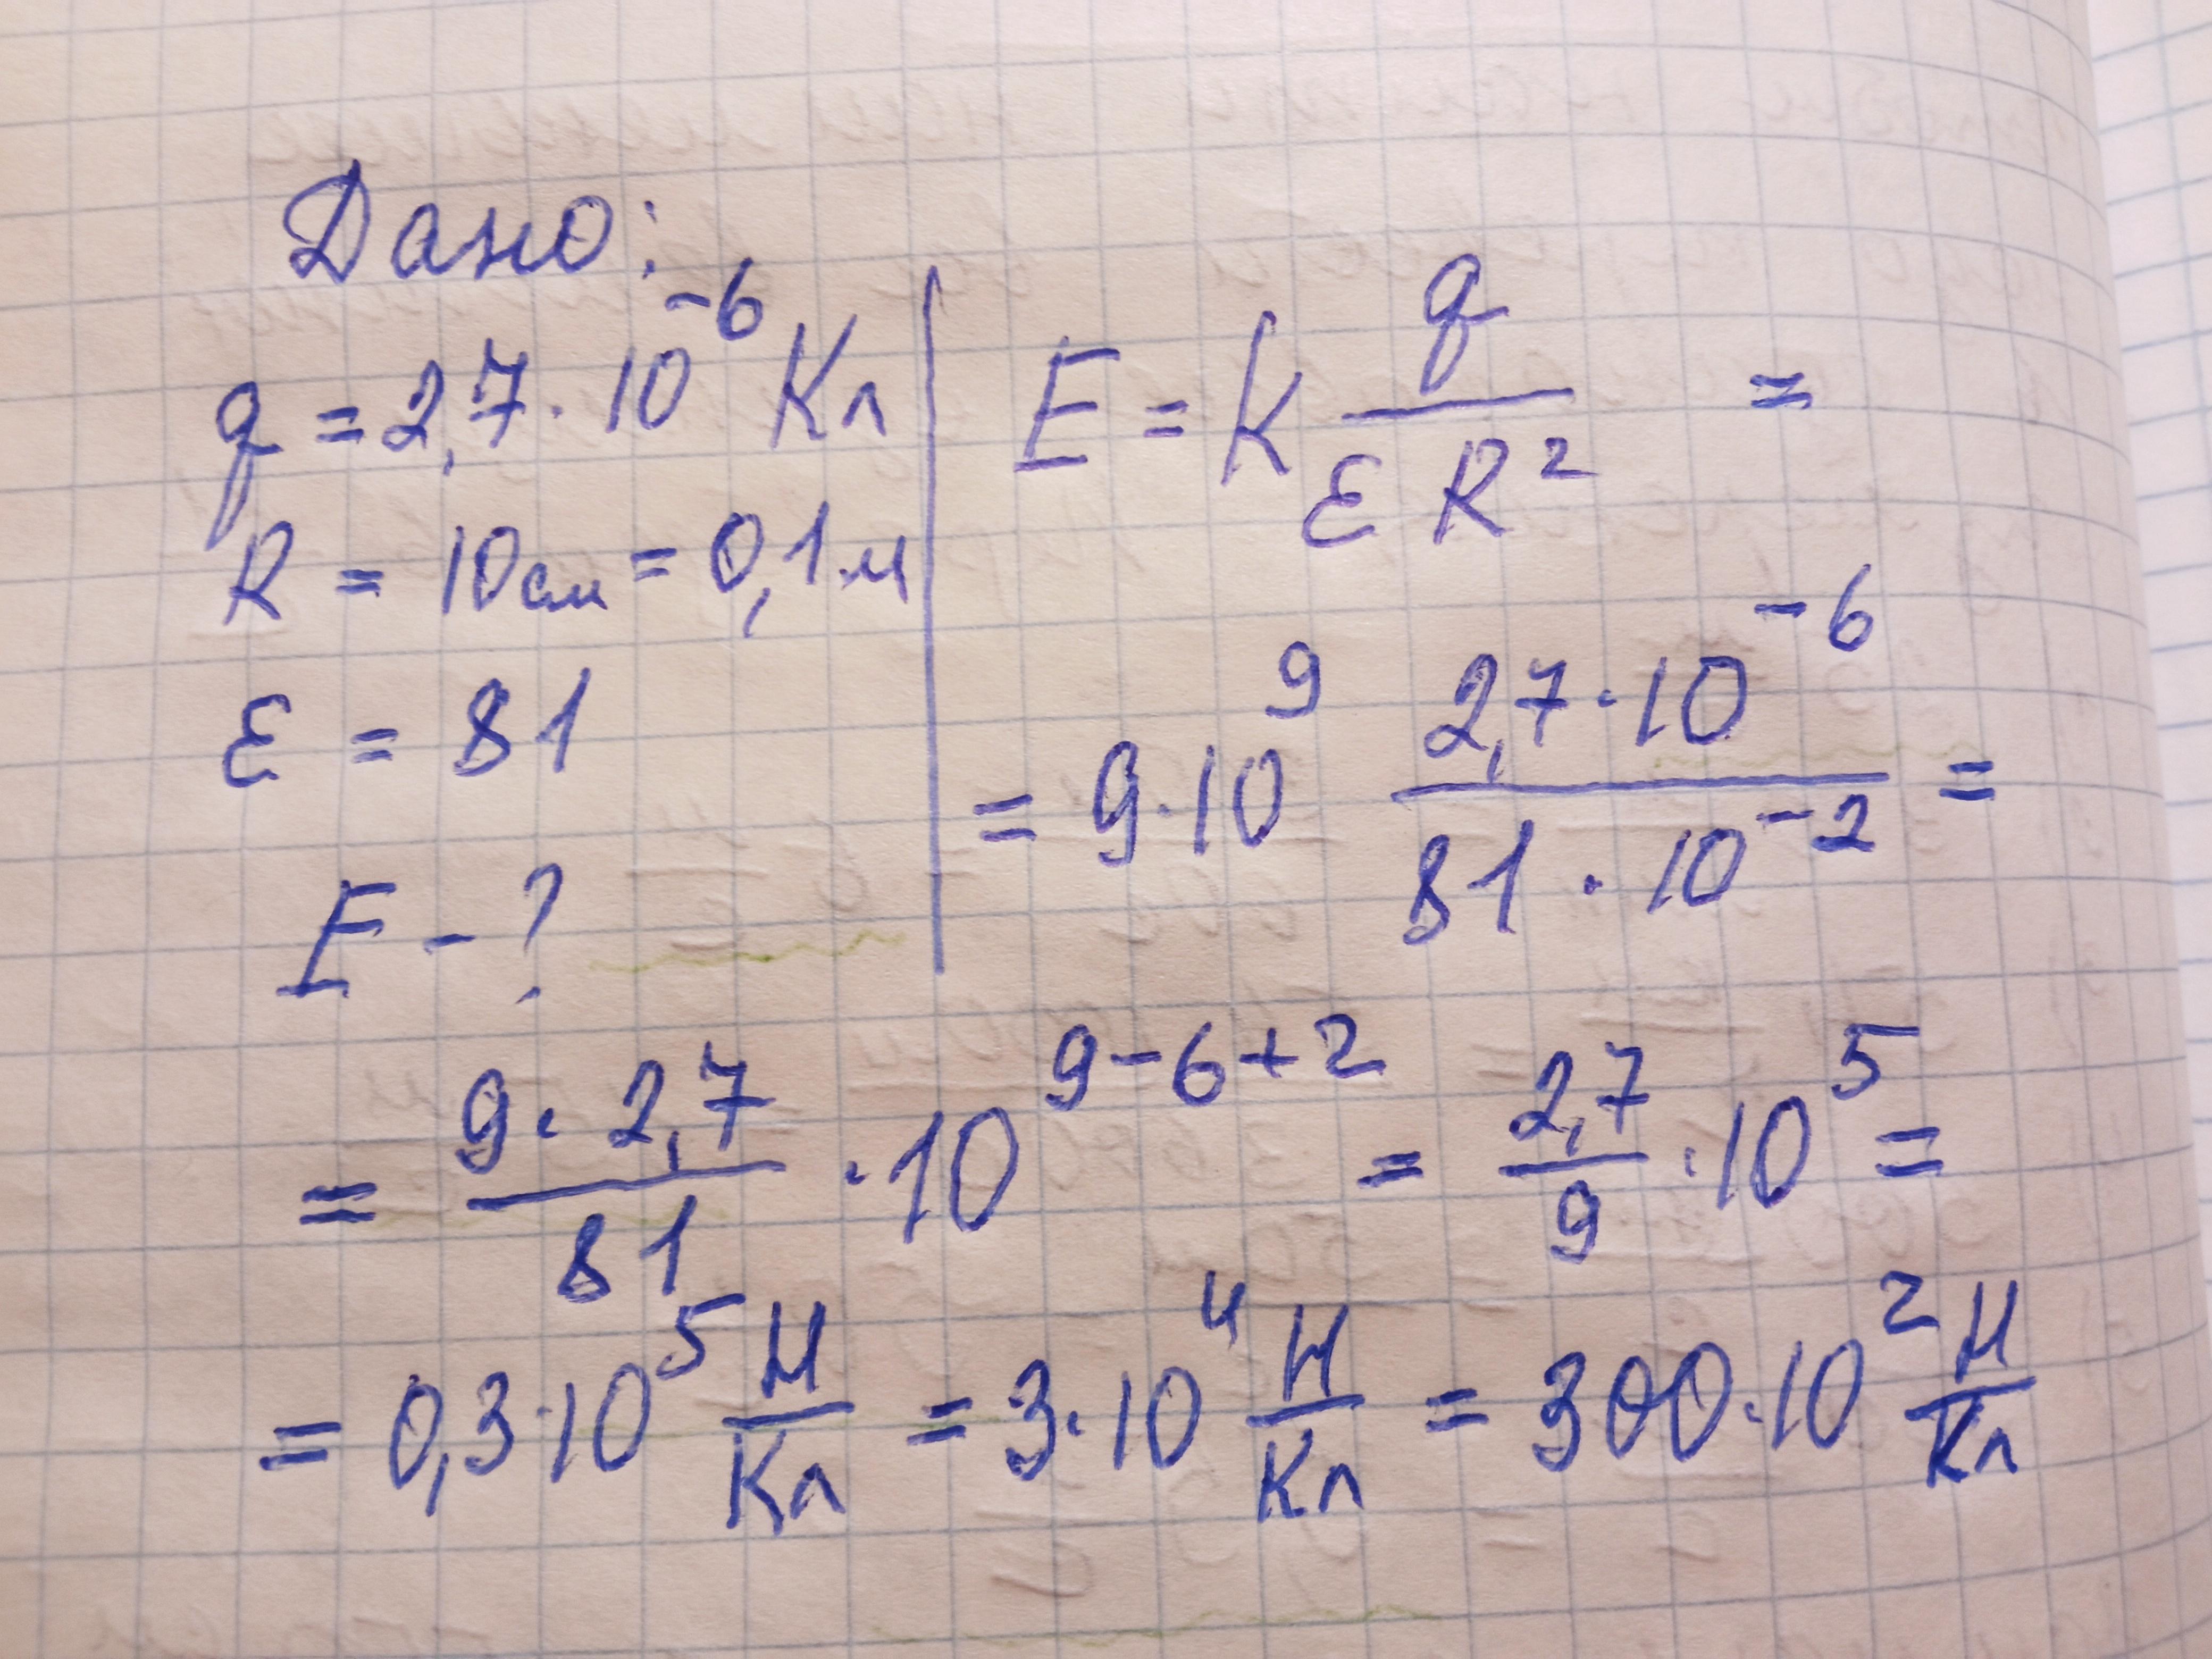 Дано:
q = 2,7 · 10⁻⁶ Кл
R = 10см = 0,1м
ε = 81
E - ?
E = K q / ε R² =
= 9·10⁹ 2,7·10⁻⁶ / 81 · 10⁻² =
= 9· 2,7 / 81 · 10⁹⁻⁶⁺² = 2,7 / 9 · 10⁵ =
= 0,3·10⁵ Н/Кл = 3·10⁴ Н/Кл = 300·10² Н/Кл